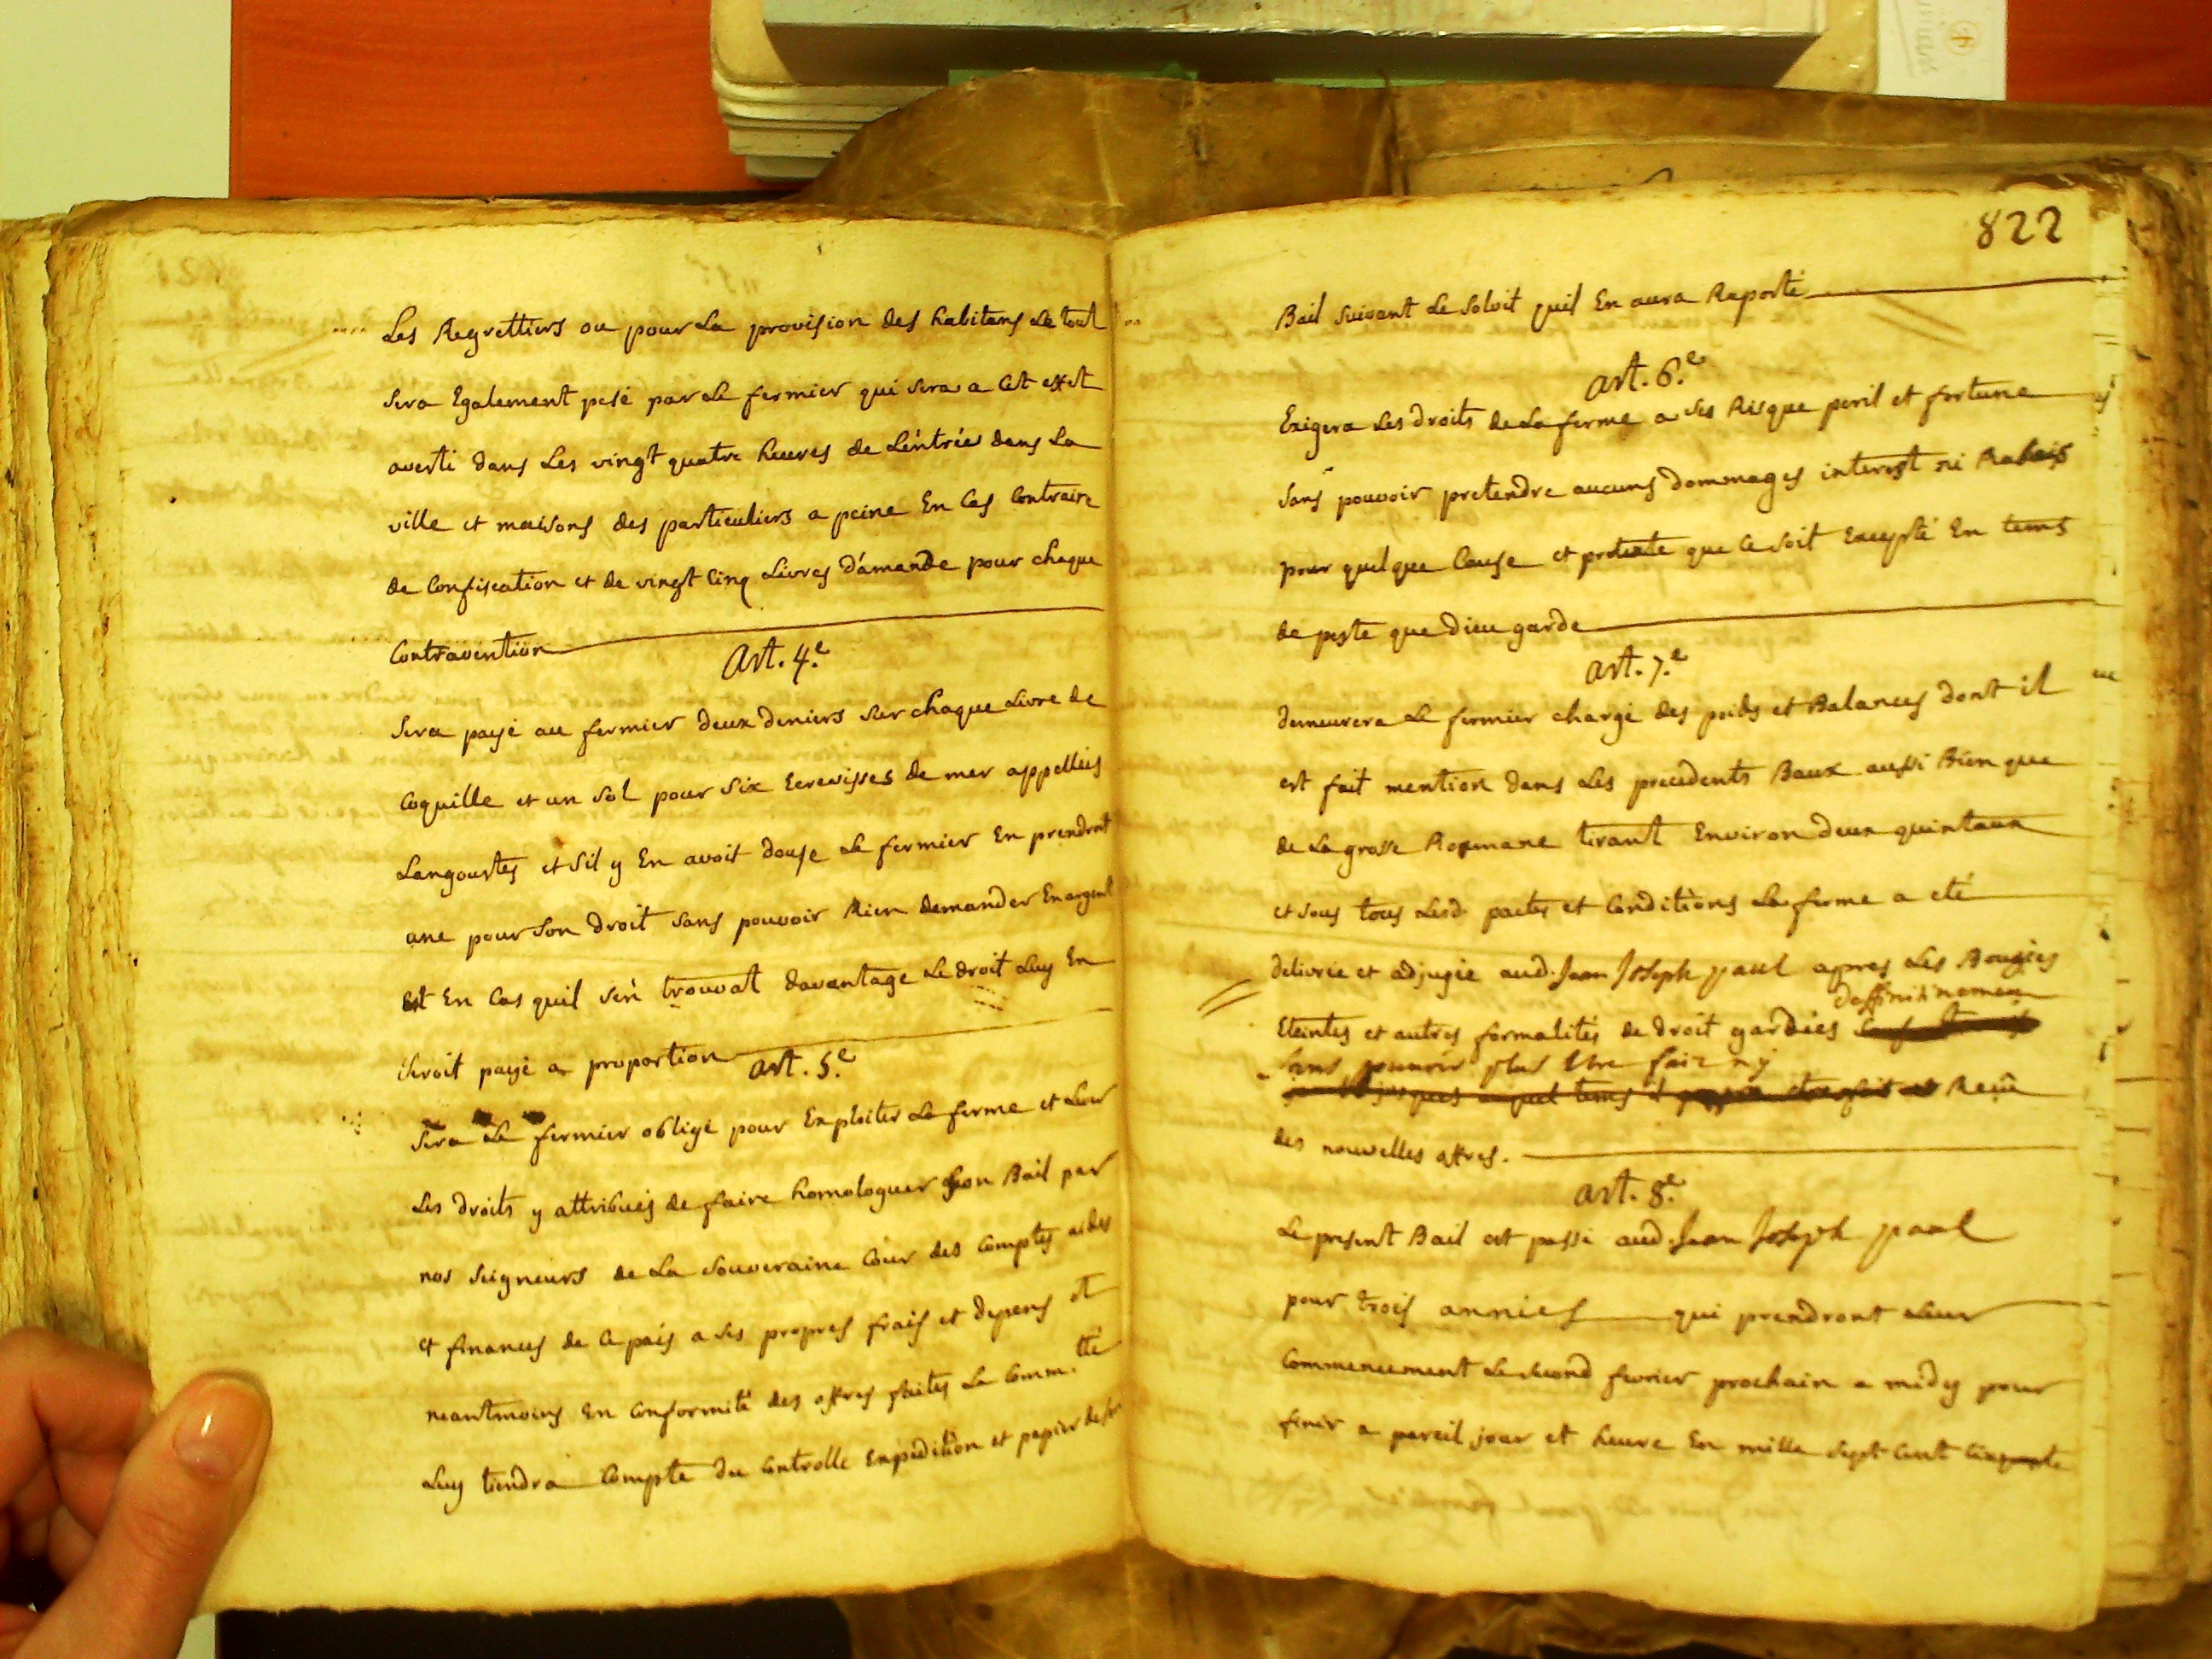 Les Regrettiers ou pour La provision des habitans Le tout
sera Egalement pesé par Le fermier qui sera a Cet effet
averti dans Les vingt quatre heures de L'entrée dans La
ville et maisons des particuliers a peine En Cas Contraire
de Confiscation et de vingt Cinq Livres d'amande pour chaque
Contravention
Art. 4.e
Sera payé au fermier deux deniers sur chaque Livre de
Coquille et un sol pour six Ecrevisses de mer appellées
Langoustes et s'il y En avoit douse Le fermier En prendroit
une pour Son droit sans pouvoir Rien demander En argent
Et En Cas quil sen trouvat davantage Le droit Luy En
seroit payé a proportion
art. 5.e
Sera Le fermier obligé pour Exploiter La ferme et Lever
Les droits y attribués de faire homologuer son Bail par
nos seigneurs de La Souveraine Cour des Comptes aides
et finances de Ce païs a ses propres frais et depens et
neantmoins En Conformité des offres faites La Comm.tté
Luy tiendra Compte du Controlle Expedition et papier de
822
Bail suivant Le Solvit quil En aura Raporté
art. 6.e
Exigera Les droits de La ferme a ses Risque peril et fortune
sans pouvoir pretendre aucuns dommages interest ni Rabais
pour quelque Cause et pretexte que Ce soit Excepté En tems
de peste que Dieu garde
art. 7.e
demeurera Le fermier chargé des poids et Balances dont il
est fait mention dans Les precedents Baux aussi Bien que
de La grosse Romane tirant Environ deux quintaux
et sous tous Lesd. pactes et Conditions La ferme a eté
delivrée et adjugée aud. Jean Joseph paul apres Les Bougies
deffinitivemen
Eteintes et autres formalités de droit gardées
sans pouvoir plus Etre fair ny
Reçû
des nouvelles offres.
art. 8.e
Le present Bail est passé aud. Jean Joseph paul
pour trois années qui prendront Leur
Commencement Le second fevrier prochain a midy pour
finir a pareil jour et heure En mille sept Cent Cinquante